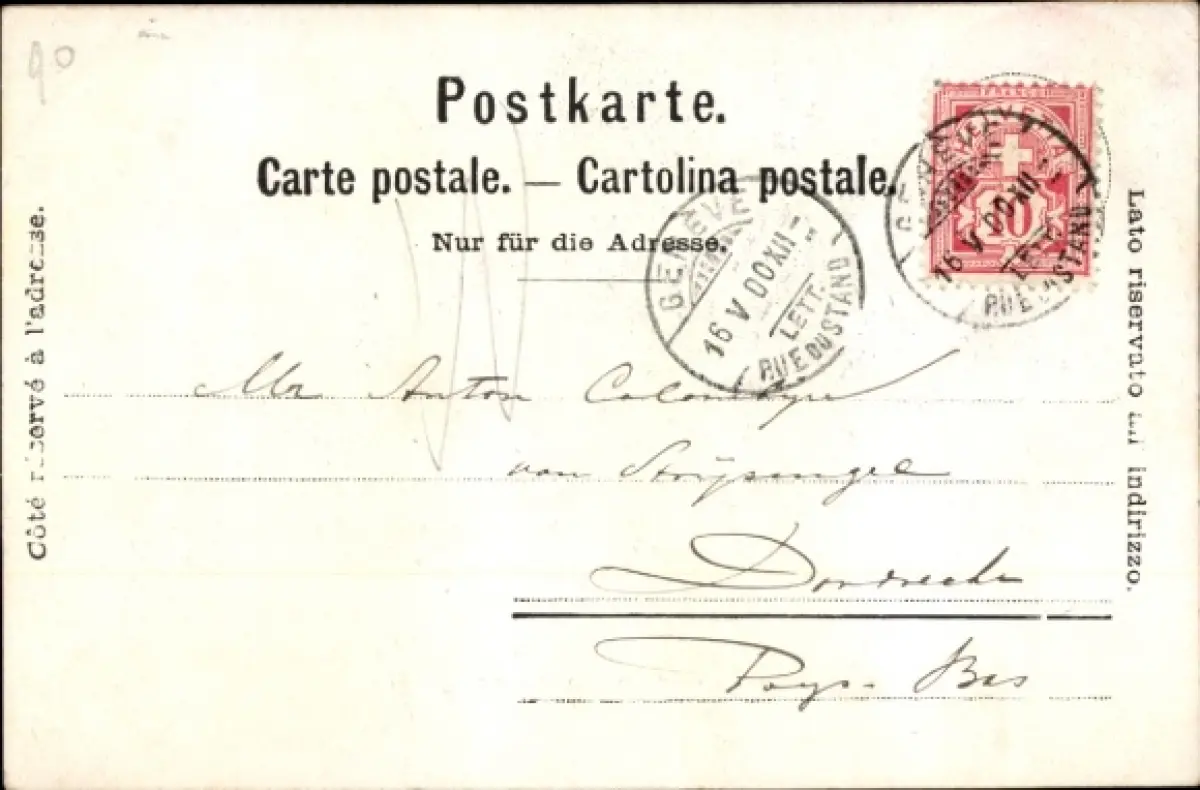 90
Postkarte.
Carte postale. — Cartolina postale.
Nur für die Adresse.
Côté réservé à l'adresse.
Lato riservato all indirizzo.
FRANCO
10
GENÈVE
16 V 00 XII –
LETT.
RUE DU STAND
GENÈVE
16 V 00 XII –
LETT.
RUE DU STAND
Mr Anton
van
Dordrecht
Pays-Bas